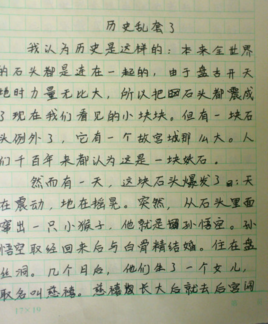 历史乱套了
我认为历史是这样的：本来全世界
的石头都是连在一起的，由于盘古开天
地时力量无比大，所以把石头都震成
了现在我们看见的小块块。但有一块石
头例外了，它有一个故宫城那么大。人
们千百年来都认为这是一块妖石。
然而有一天，这块石头爆发了：天
在震动，地在摇晃。突然，从石头里面
蹦出一只小猴子，他就是孙悟空。孙
悟空取经回来后与白骨精结婚。住在盘
丝洞。几个月后，他们生了一个女儿，
取名叫慈禧。慈禧长大后就去后宫闹